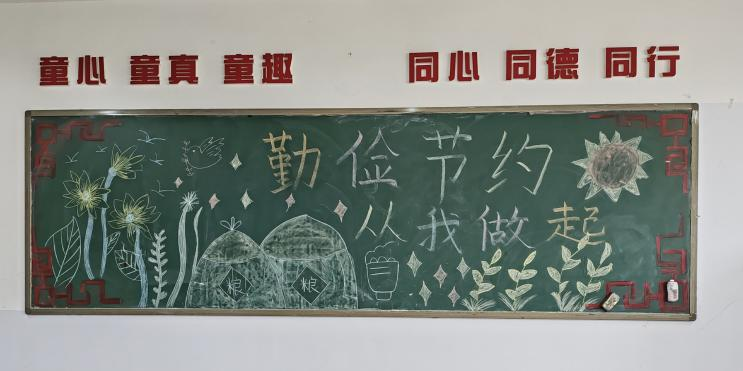 童心 童真 童趣 同心 同德 同行
勤俭节约
从我做起
粮 粮